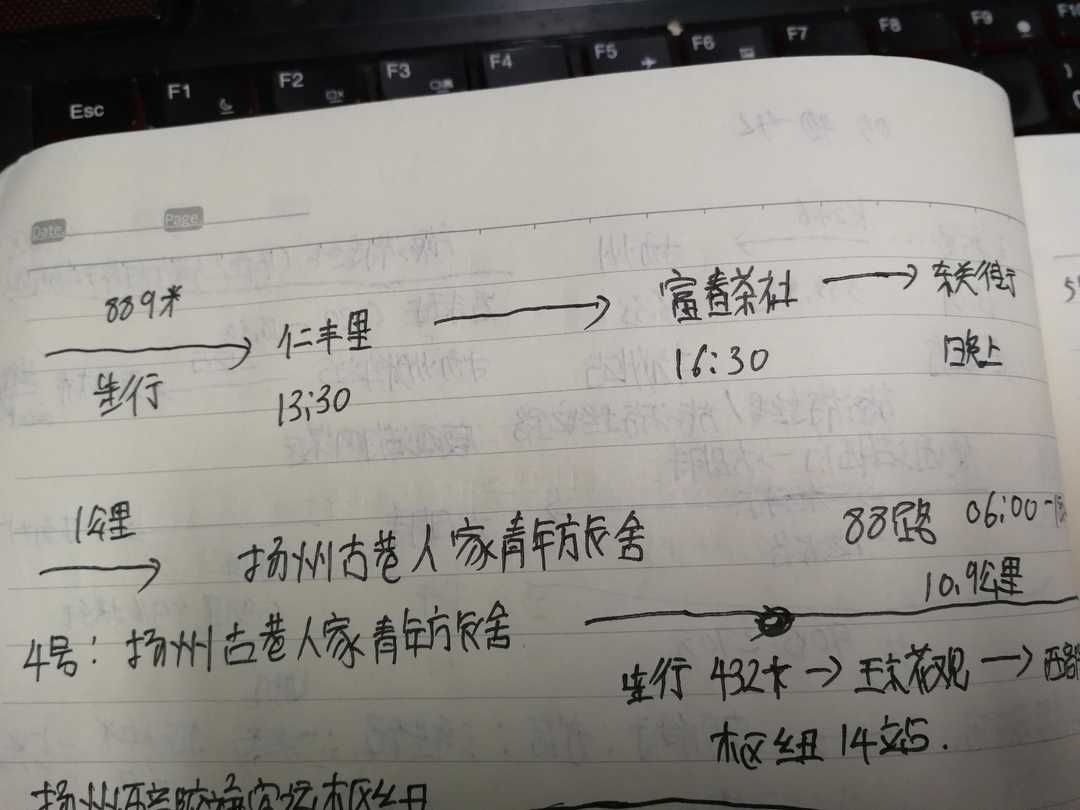 Esc F1 F2 F3 F4 F5 F6 F7 F8 F9 F10
Date. Page.
889米 仁丰里 富春茶社 东关街
步行 13:30 16:30 晚上
1公里 扬州古巷人家青年旅舍 88路 06:00-
10.9公里
4号：扬州古巷人家青年旅舍
步行 432米 → 王 花观 → 西部
枢纽 14站.
扬州西部 客运枢纽